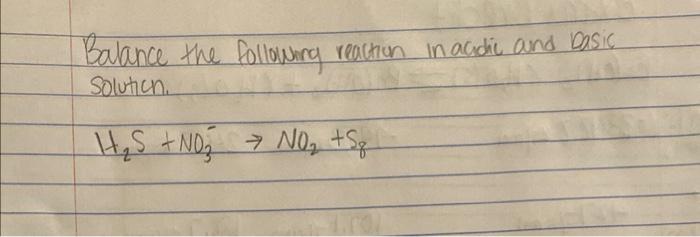 Balance the following reaction in acidic and basic
solution.
H₂S + NO₃⁻ → NO₂ + S₈